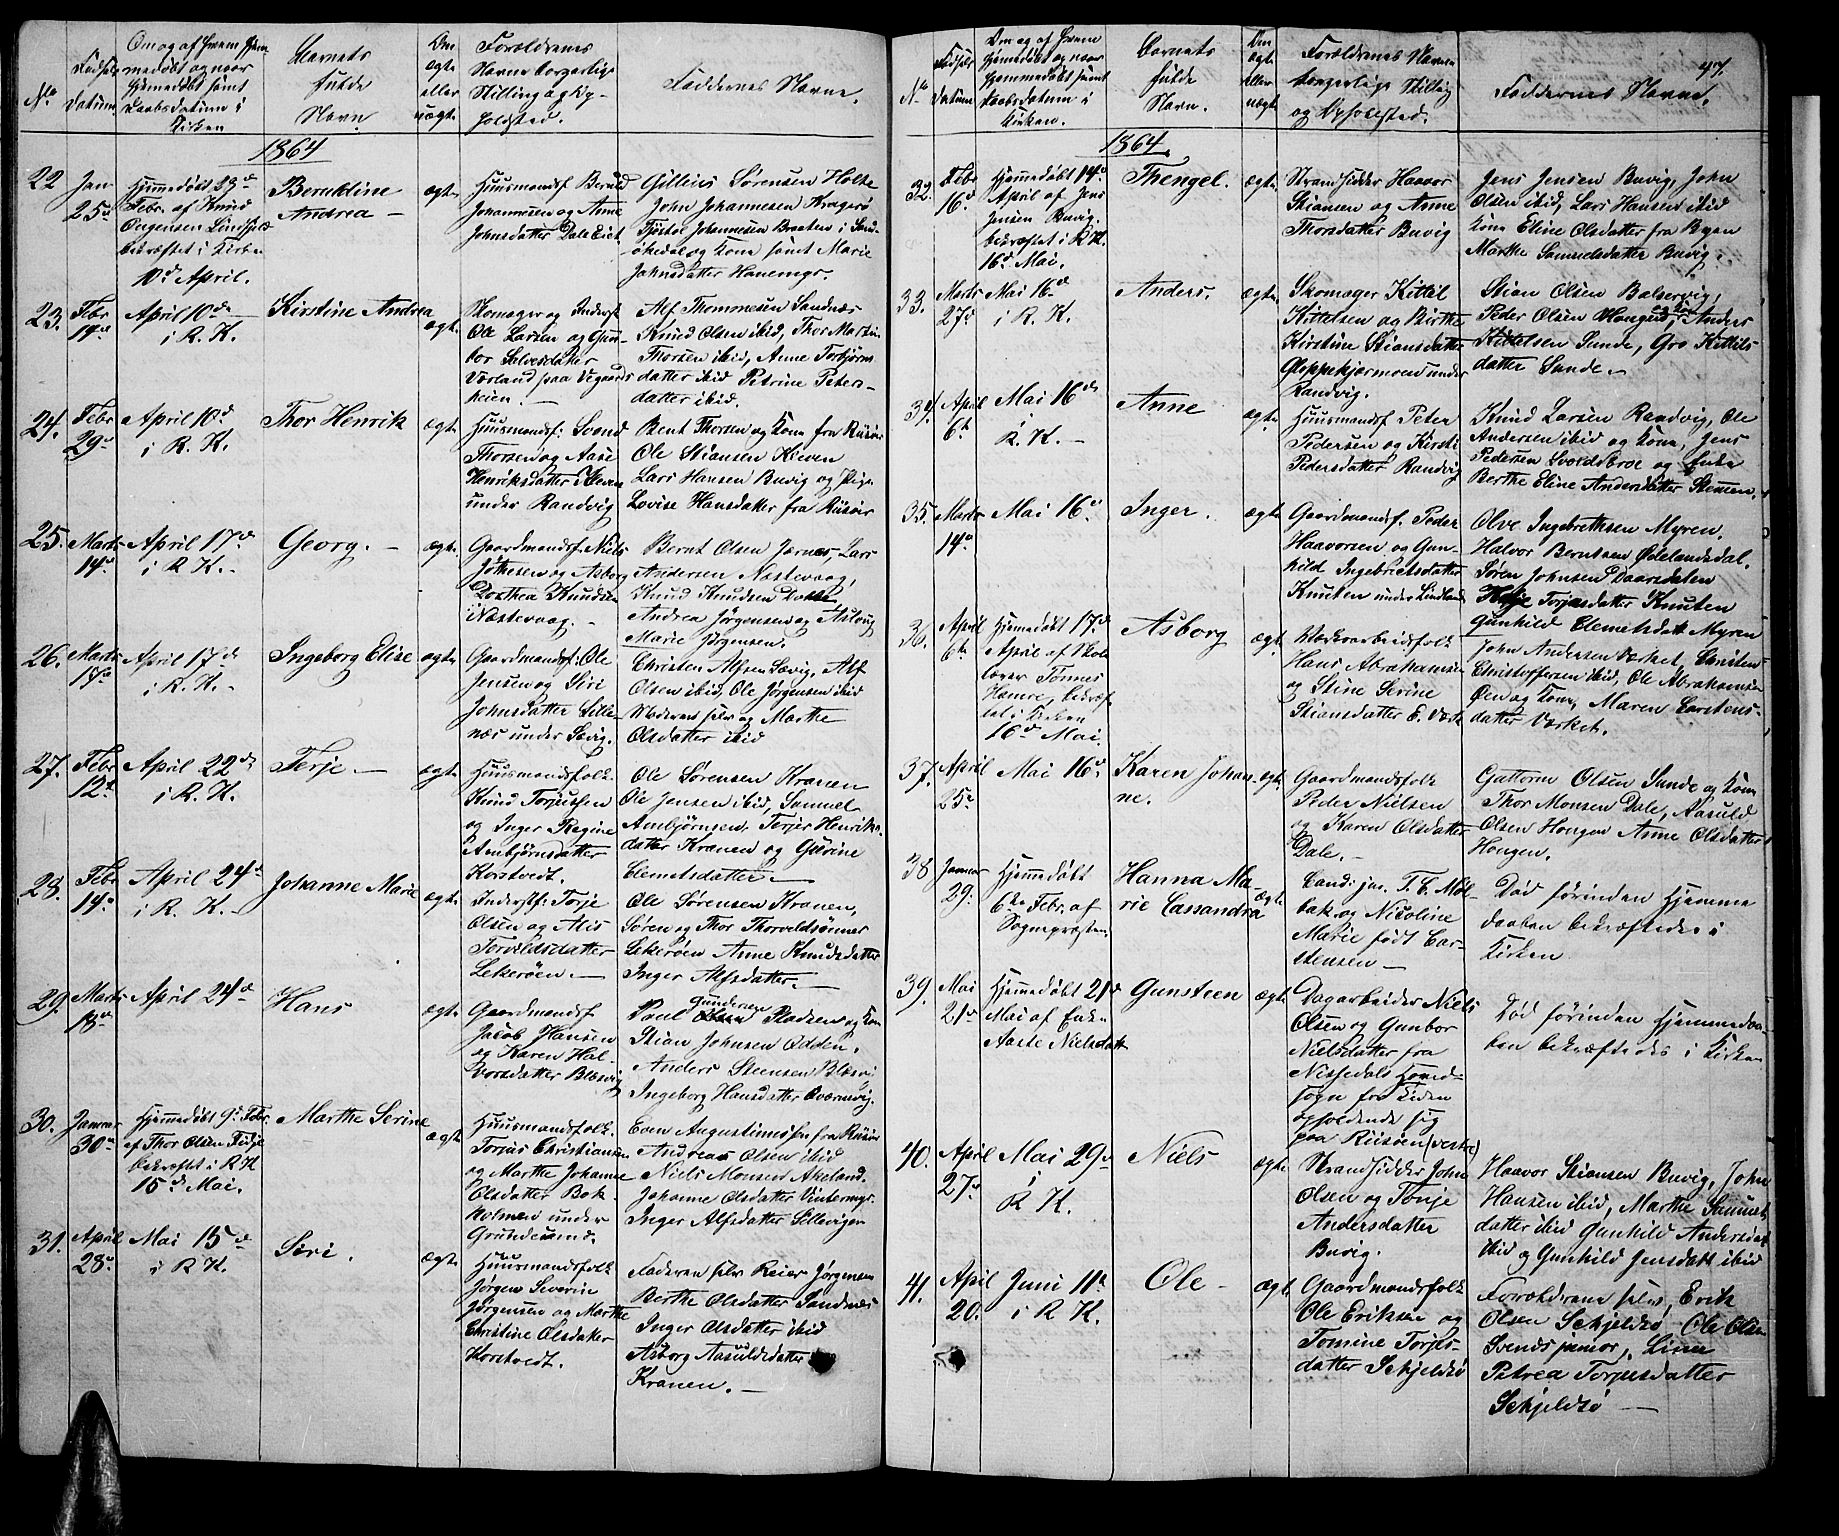 No
Fødsels
datum
Om og af hvem hjem
medøbt og naar
hjemmedøbt samt
Daabsdatum i
Kirken
Barnets
fulde
Navn
Om
ægte
eller
uægte
Forældrenes
Navne borgerlig
Stilling og Op-
holdsted.
Faddernes Navne.
1864
22
Jan
25d
Hjemmedøbt
Febr. af Knud
bekræftet i Kirken
10d April.
Berntine
Andrea —
ægte
Huusmandsf.
Johannesen og Anne
Johnsdatter Dale
Sørensen Holte
John Johannesen Kragerø
Johannesen Braaten i
og Kone samt Marie
Johnsdatter
23.
Febr
14d
April 10de
i R. K.
Kirstine Andrea
ægte
Skomager og Inderst
Ole Larsen og Gun-
bor
Værland paa Vegaards
heien. —
Alf Thommesen Sandnæs
Knud Olsen ibid, Thor Martin
Thorsen ibid, Anne Torbjørns
datter ibid Petrine Peter-
datter ibid.
24.
Febr
29d
April 10d
i R. K.
Thor Henrik
ægte
Huusmandsf: Svend
Thorsen og Aase
Henriksdatter
under Randvig
Bent Thorsen og Kone fra Riisøer
Ole Stiansen
Lars Hansen Buvig og Pige
Lovise Hansdatter fra Riisøer
25.
Marts
14d
April 17de
i R K. —
Georg. —
ægte
Gaardmandsf: Niels
og Asborg
Dorthea Knudsen
Næstevaag. —
Bernt Olsen Jærnes, Lars
Andersen Næstevaag,
Knud Knudsen
Andrea Jørgensen og Aslaug
Marie Jørgensen.
26.
Marts
17d
April 17de
i R. K. —
Ingeborg Elise
ægte
Gaardmandsf: Ole
Jensen og Siri
Johnsdatter Sille-
næs under Søvig.
Christen Alfsen Søvig, Alf
Olsen ibid, Ole Jørgensen ibid
Moderen selv og Marthe
Olsdatter ibid
27.
Febr
12d
April 22de
i R. K.
Terje —
ægte
Huusmandsfolk
Knud Torjussen
og Inger Regine
Ambjørnsdatter
Korstvedt.
Ole Sørensen Kranen
Ole Jensen ibid, Samuel
Ambjørnsen, Torjer Henriks-
datter Kranen og Gurine
Clemetsdatter. —
28.
Febr
14d
April 24d
i R. K. —
Johanne Marie
ægte
Inderstf: Torje
Olsen og Alis
Torvildsdatter
Lekerøen. —
Ole Sørensen Kranen,
Søren og Thor Thorvaldsønner
Lekerøen Anne Knudsdatter
Inger Alfsdatter. —
29.
Marts
18d
April 24d
Hans
ægte
Gaardmandsf
Jacob Hansen
og Karen Hal-
vorsdatter Blæsvig
Poul Gundersen og Kone
Stian Johnsen Odden,
Anders Steensen Blæsvi
Ingeborg Hansdatter
30.
Januar
30d
Hjemmedøbt 9d Febr
af Thor Olsen
bekræftet i R K
15d Mai.
Marthe Serine
ægte
Huusmandsfolk
Torjus Christiansen
og Marthe Johanne
Olsdatter Bok-
holmen under
Grundesund.
Even Augustinussen fra Riisøer
Andreas Olsen ibid
Niels Monsen Akeland.
Johanne Olsdatter
Inger Alfsdatter Sillevigen
31.
April
28d
Mai 15de
i R K.
Siri.
ægte
Huusmandsfolk
Jørgen Severin
Jørgensen og Marthe
Christine Olsdatter
Korstvedt.
Faderen selv Reier Jørgensen
Berthe Olsdatter Sandnæs
Inger Olsdatter ibid
Asborg Aasuldsdatter
Kranen. —
47.
No
Fødsels
datum
Om og af hvem
hjemmedøbt og naar
hjemmedøbt samt
Daabsdatum i
Kirken.
Barnets
fulde
Navn.
Om
ægte
eller
uægte
Forældrenes Navne
borgerlige Stilling
og Opholdssted.
Faddernes Navne.
1864
32.
Febr
16d
Hjemmedøbt 14d
April af Jens
Jensen Buvig.
bekræftet i R K.
16d Mai.
Thengel.
ægte
Strandsidder Haavor
Stiansen og Anne
Thorsdatter Buvig
Jens Jensen Buvig, John
Olsen ibid, Lars Hansen ibid
Kone Eline Olsdatter fra Byen
Marthe Samuelsdatter Buvig.
33.
Marts
27d
Mai 16d
i R. K.
Anders.
ægte
Skomager Kittil
Kittelsen og Birthe
Kirstine Stiansdatter
under
Randvig.
Stian Olsen
Peder Olsen og Kone, Anders
Kittelsen Sunde, Gro Kittils
datter Sunde. —
34.
April
6te
Mai 16de
i
R. K. —
Anne
ægte
Huusmandsf Peter
Pedersen og Kirsti
Pedersdatter Randvig
Knud Larsen Randvig, Ole
Andersen ibid og Kone, Jens
Pedersen og Enke
Berthe Eline Andersdatter
35.
Marts
14d
Mai 16d
Inger.
ægte
Gaardmandsf. Peder
Haavorsen og Gun-
hild Ingebretsdatter
Knuten under Lindland
Olve Ingebrethsen Myren.
Halvor Berntsen Ødelandsdal.
Søren Johnsen
Torjusdatter Knuten
Gunhild Clemetsdatt Myren
36.
April
6te
Hjemmedøbt 17d
April af Skole
lærer Tønnes
bekræf
tet i Kirken
16d Mai.
Asborg
ægte
Værksarbeidsfolk
Hans Abrahamsen
og Stine Serine
Stiansdatter E. Værk
John Andersen Værket, Christen
Christoffersen ibid, Ole Abrahamsen
Øen og Kone, Maren Carstens-
datter Værket.
37.
April
25d
Mai 16d
Karen Johan
ne.
ægte
Gaardmandsfolk
Peder Nielsen
og Karen Olsdatter
Dale. —
Guttorm Olsen Sunde og Kone
Thor Monsen Dale, Aasuld
Olsen Hougen Anne Olsdatter
Hougen.
38
Januar
29.
Hjemmedøbt
6te Febr. af
Sognepræsten
Hanna Ma-
rie Cassandra
ægte
Cand: jur. T. C. Møl-
bak og Nicoline
Marie født Car-
stensen —
Død førinden Hjemme
daaben bekræftedes i
Kirken
39.
Mai
21d
Hjemmedøbt 21d
Mai af Enke
Aaste Nielsdatt
Gunsteen
ægte
Dagarbeider Niels
Olsen og Gunbor
Nielsdatter fra
Nissedals Hoved-
sogn for Tiden
opholdende sig
paa Riisøen (vestre)
Død førinden Hjemmedaa-
ben bekræftedes i Kirken
40.
April
27d
Mai 29d
i
R K.
Niels
ægte
Strandsidder John
Olsen og Tonje
Andersdatter
Buvig.
Haavor Stiansen Buvig, John
Hansen ibid, Marthe Samuels
datter ibid Gunhild Andersdat
ibid og Gunhild Jensdatt ibid
41.
April
20.
Juni 11d
i R K.
Ole —
ægte
Gaardmandsfolk
Ole Eriksen og
Tomine Torjus-
datter Skjeldsø
Forældrene selv, Erik
Olsen Skjeldsø Ole Olsen
junior, Line
Petrea Torjusdatter
Skjeldsø —